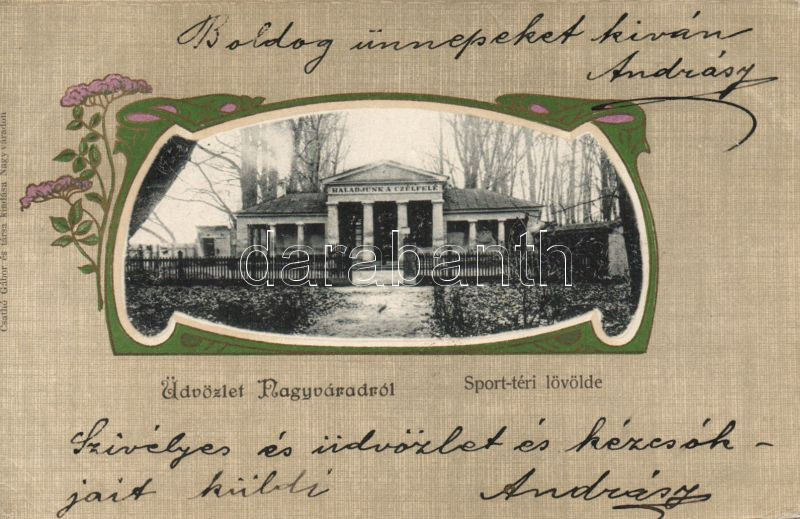 Boldog ünnepeket kiván
Andrásy
HALADJUNK A CZÉLFELÉ
darabanth
Csathó Gábor és társa kiadása Nagyváradon
Üdvözlet Nagyváradról
Sport-téri lövölde
Szivélyes és üdvözlet és kézcsók-
jait küldi
Andrásy